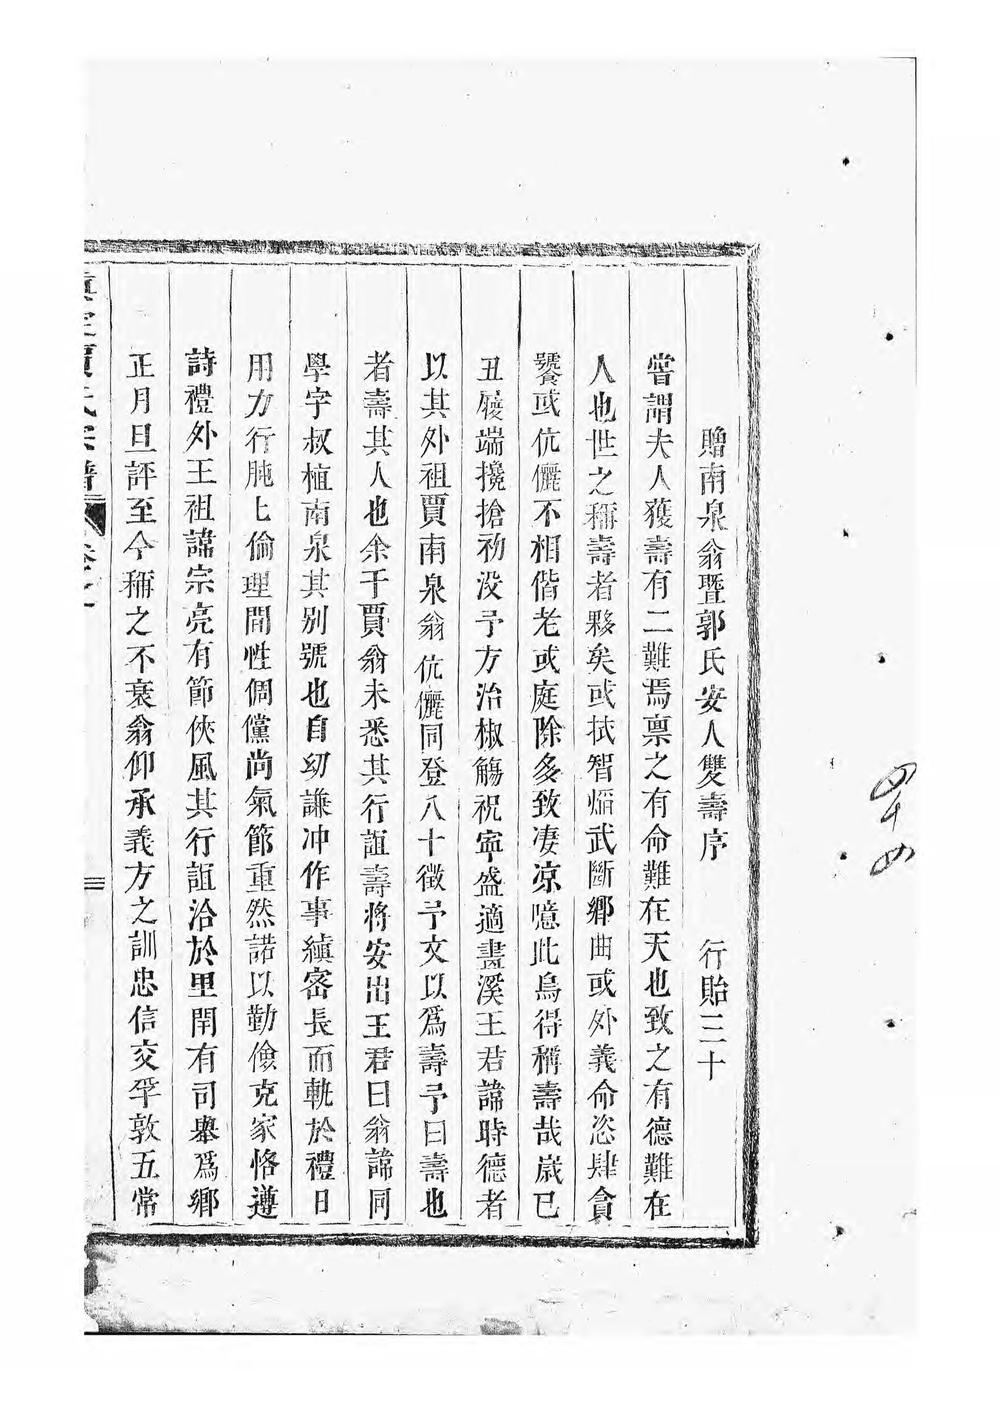 贈南泉翁暨郭氏安人雙壽序　行貽三十
嘗謂夫人獲壽有二難焉禀之有命難在天也致之有德難在
人也世之稱壽者夥矣或拭智煽武斷鄉曲或外義命恣肆貪
饕或伉儷不相偕老或庭除多致凄凉噫此烏得稱壽哉歲巳
丑履端攙搶初没予方治椒觴祝寧盛適畫溪王君諱時德者
以其外祖賈南泉翁伉儷同登八十徵予文以爲壽予曰壽也
者壽其人也余于賈翁未悉其行誼壽將安出王君曰翁諱同
學字叔植南泉其別號也自幼謙冲作事縝密長而軌於禮日
用力行肫匕倫理間性倜儻尚氣節重然諾以勤儉克家恪遵
詩禮外王祖諱宗亮有節俠風其行誼洽於里閈有司舉爲鄉
正月旦評至今稱之不衰翁仰承義方之訓忠信交孚敦五常
賈氏宗譜
四十四